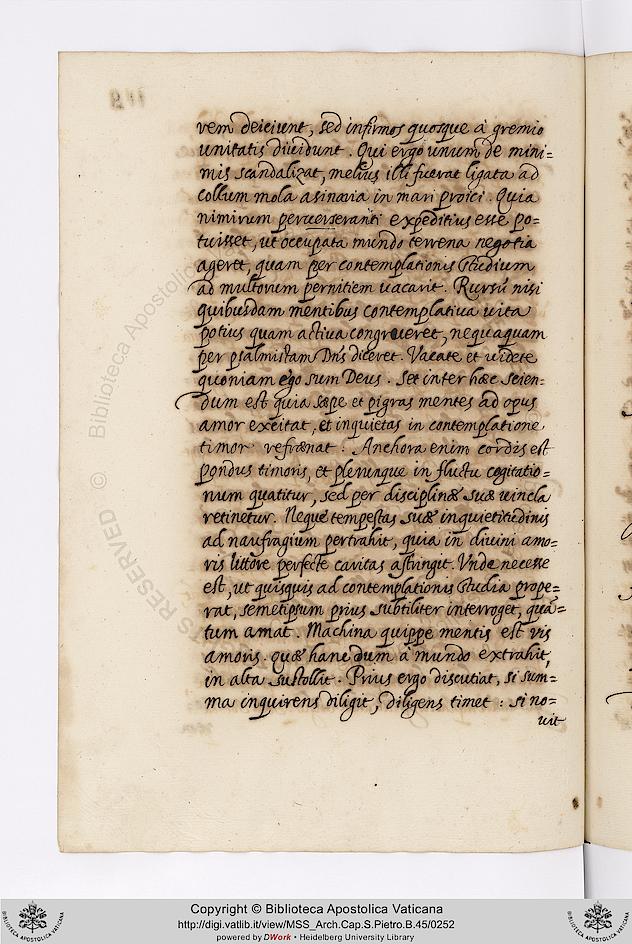 rem deiciunt, sed infirmos quosque à gremio
unitatis diuidunt. Qui ergo unum de mini=
mis scandalizat, melius illi fuerat ligata ad
collum mola asinaria in mari proici. Quia
nimirum peruerseranti expeditius esse po=
tuisset, ut occupata mundo terrena negotia
ageret, quam per contemplationis studium
ad multorum pernitiem uacarit. Rursũ nisi
quibusdam mentibus contemplatiua uita
potius quam actiua congrueret, nequaquam
per psalmistam Dñs diceret. Vacate et uidete
quoniam ego sum Deus. Set inter hæc scien=
dum est quia sæpe et pigras mentes ad opus
amor excitat, et inquietas in contemplatione
timor refrænat. Anchora enim cordis est
pondus timoris, et plerunque in fluctu cogitatio=
num quatitur, sed per disciplinæ suæ uincla
retinetur. Neque tempestas suæ inquietitudinis
ad naufragium pertrahit, quia in diuini amo=
ris littore perfecte caritas astringit. Vnde necesse
est, ut quisquis ad contemplationis studia prope=
rat, semetipsum prius subtiliter interroget, quã=
tum amat. Machina quippe mentis est uis
amoris. quæ hanc dum à mundo extrahit,
in alta sustollit. Prius ergo discutiat, si sum=
ma inquirens diligit, diligens timet: si no=
uit
Copyright © Biblioteca Apostolica Vaticana
http://digi.vatlib.it/view/MSS_Arch.Cap.S.Pietro.B.45/0252
powered by DWork • Heidelberg University Library